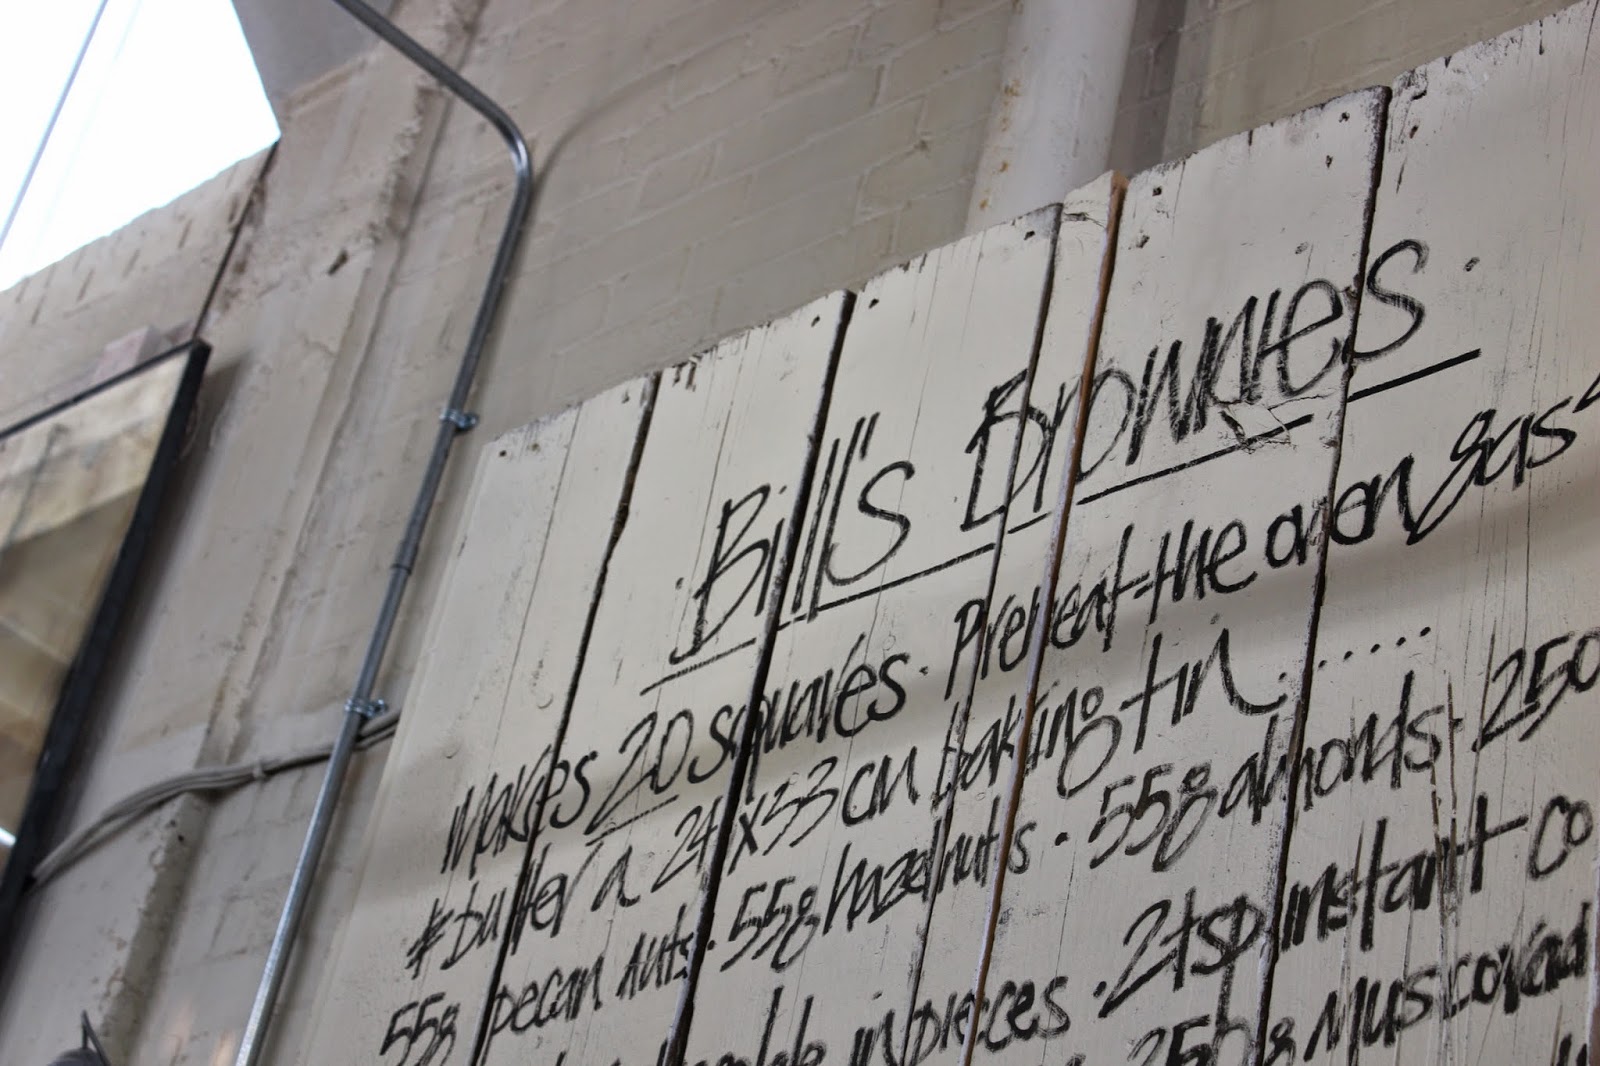 . Bill's Brownies .
Makes 20 squares. Preheat the oven gas
& butter a 24x33cm baking tin.......
55g pecan nuts. 55g hazelnuts. 55g almonds. 250
in pieces. 2tsp instant co
250g Muscovad